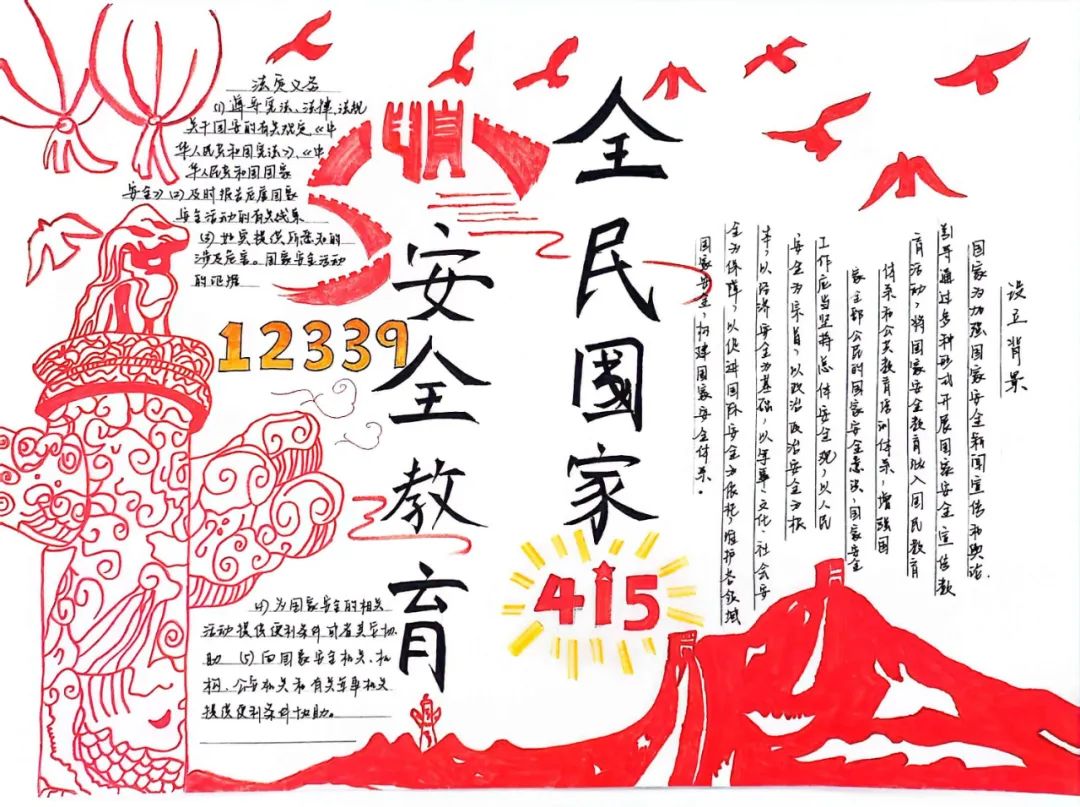 全民國家
安全教育
415
12339
法定义务
(1) 遵守宪法、法律、法规
关于国安的有关规定《中
华人民共和国宪法》、《中
华人民共和国国家
安全》(2) 及时报告危害国家
安全活动的有关线索
(3) 如实提供所悉知的
涉及危害。国家安全活动
的证据
(4) 为国家安全的相关
活动提供便利条件或者其它协
助 (5) 向国家安全机关、机
构、公安机关和有关军事机关
提供便利条件协助。
设立背景
国家为加强国家安全新闻宣传和舆论,
引导通过多种形式开展国家安全宣传教
育活动,将国家安全教育纳入国民教育
体系和公关教育培训体系,增强国
家主部公民的国家安全意识,国家安全
工作应当坚持总体安全观,以人民
安全为宗旨,以政治政治安全为根
本,以经济安全为基础,以军事、文化、社会安
全为保障,以促进国际安全为依托,维护各领域
国家安全,构建国家安全体系。